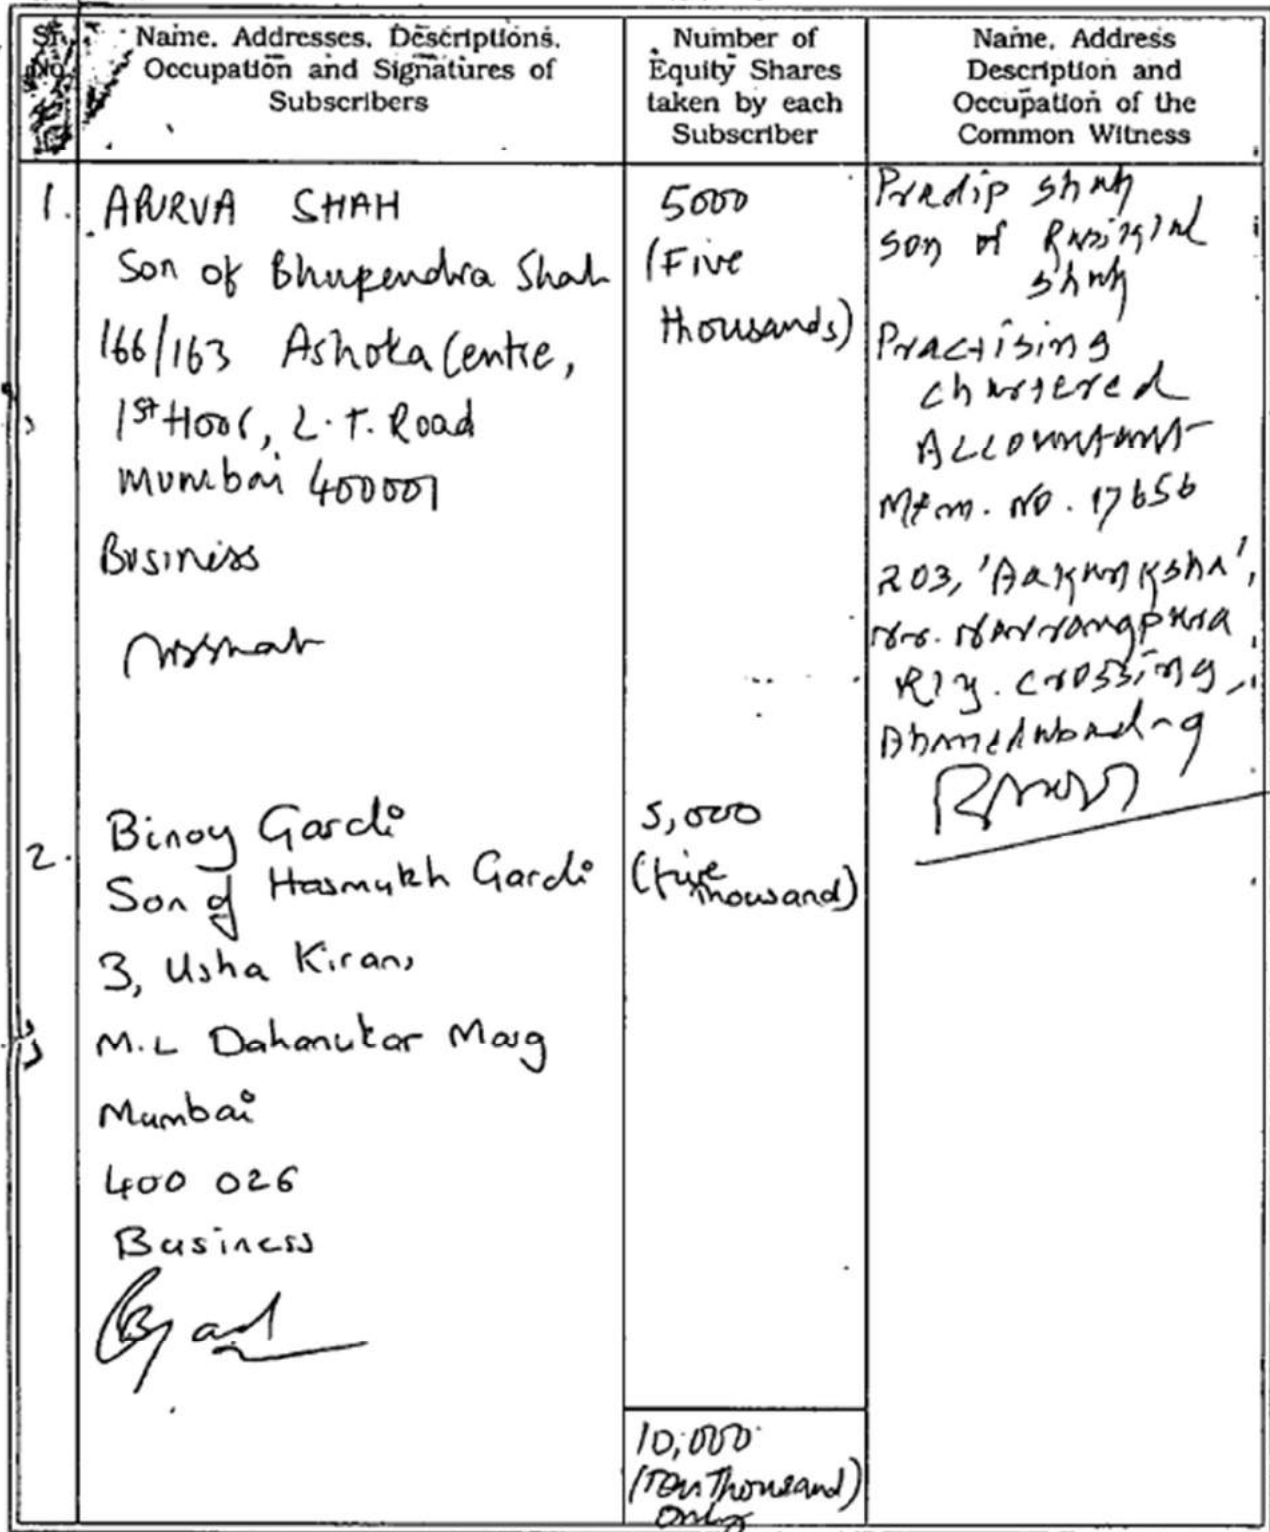 Sr. No.
Name, Addresses, Descriptions,
Occupation and Signatures of
Subscribers
Number of
Equity Shares
taken by each
Subscriber
Name, Address
Description and
Occupation of the
Common Witness
1.
APURVA SHAH
Son of Bhupendra Shah
166/163 Ashoka Centre,
1st Floor, L.T. Road
Mumbai 400001
Business
5000
(Five
thousands)
Pradip Shah
son of Rasiklal
Shah
Practising
chartered
Accountant
Mem. No. 17656
203, 'Aakanksha',
Nr. Navrangpura
Rly. crossing,
Ahmedabad-9
2.
Binoy Gardi
Son of Hasmukh Gardi
3, Usha Kiran,
M.L Dahanukar Marg
Mumbai
400 026
Business
5,000
(five
thousand)
10,000
(Ten Thousand)
Only